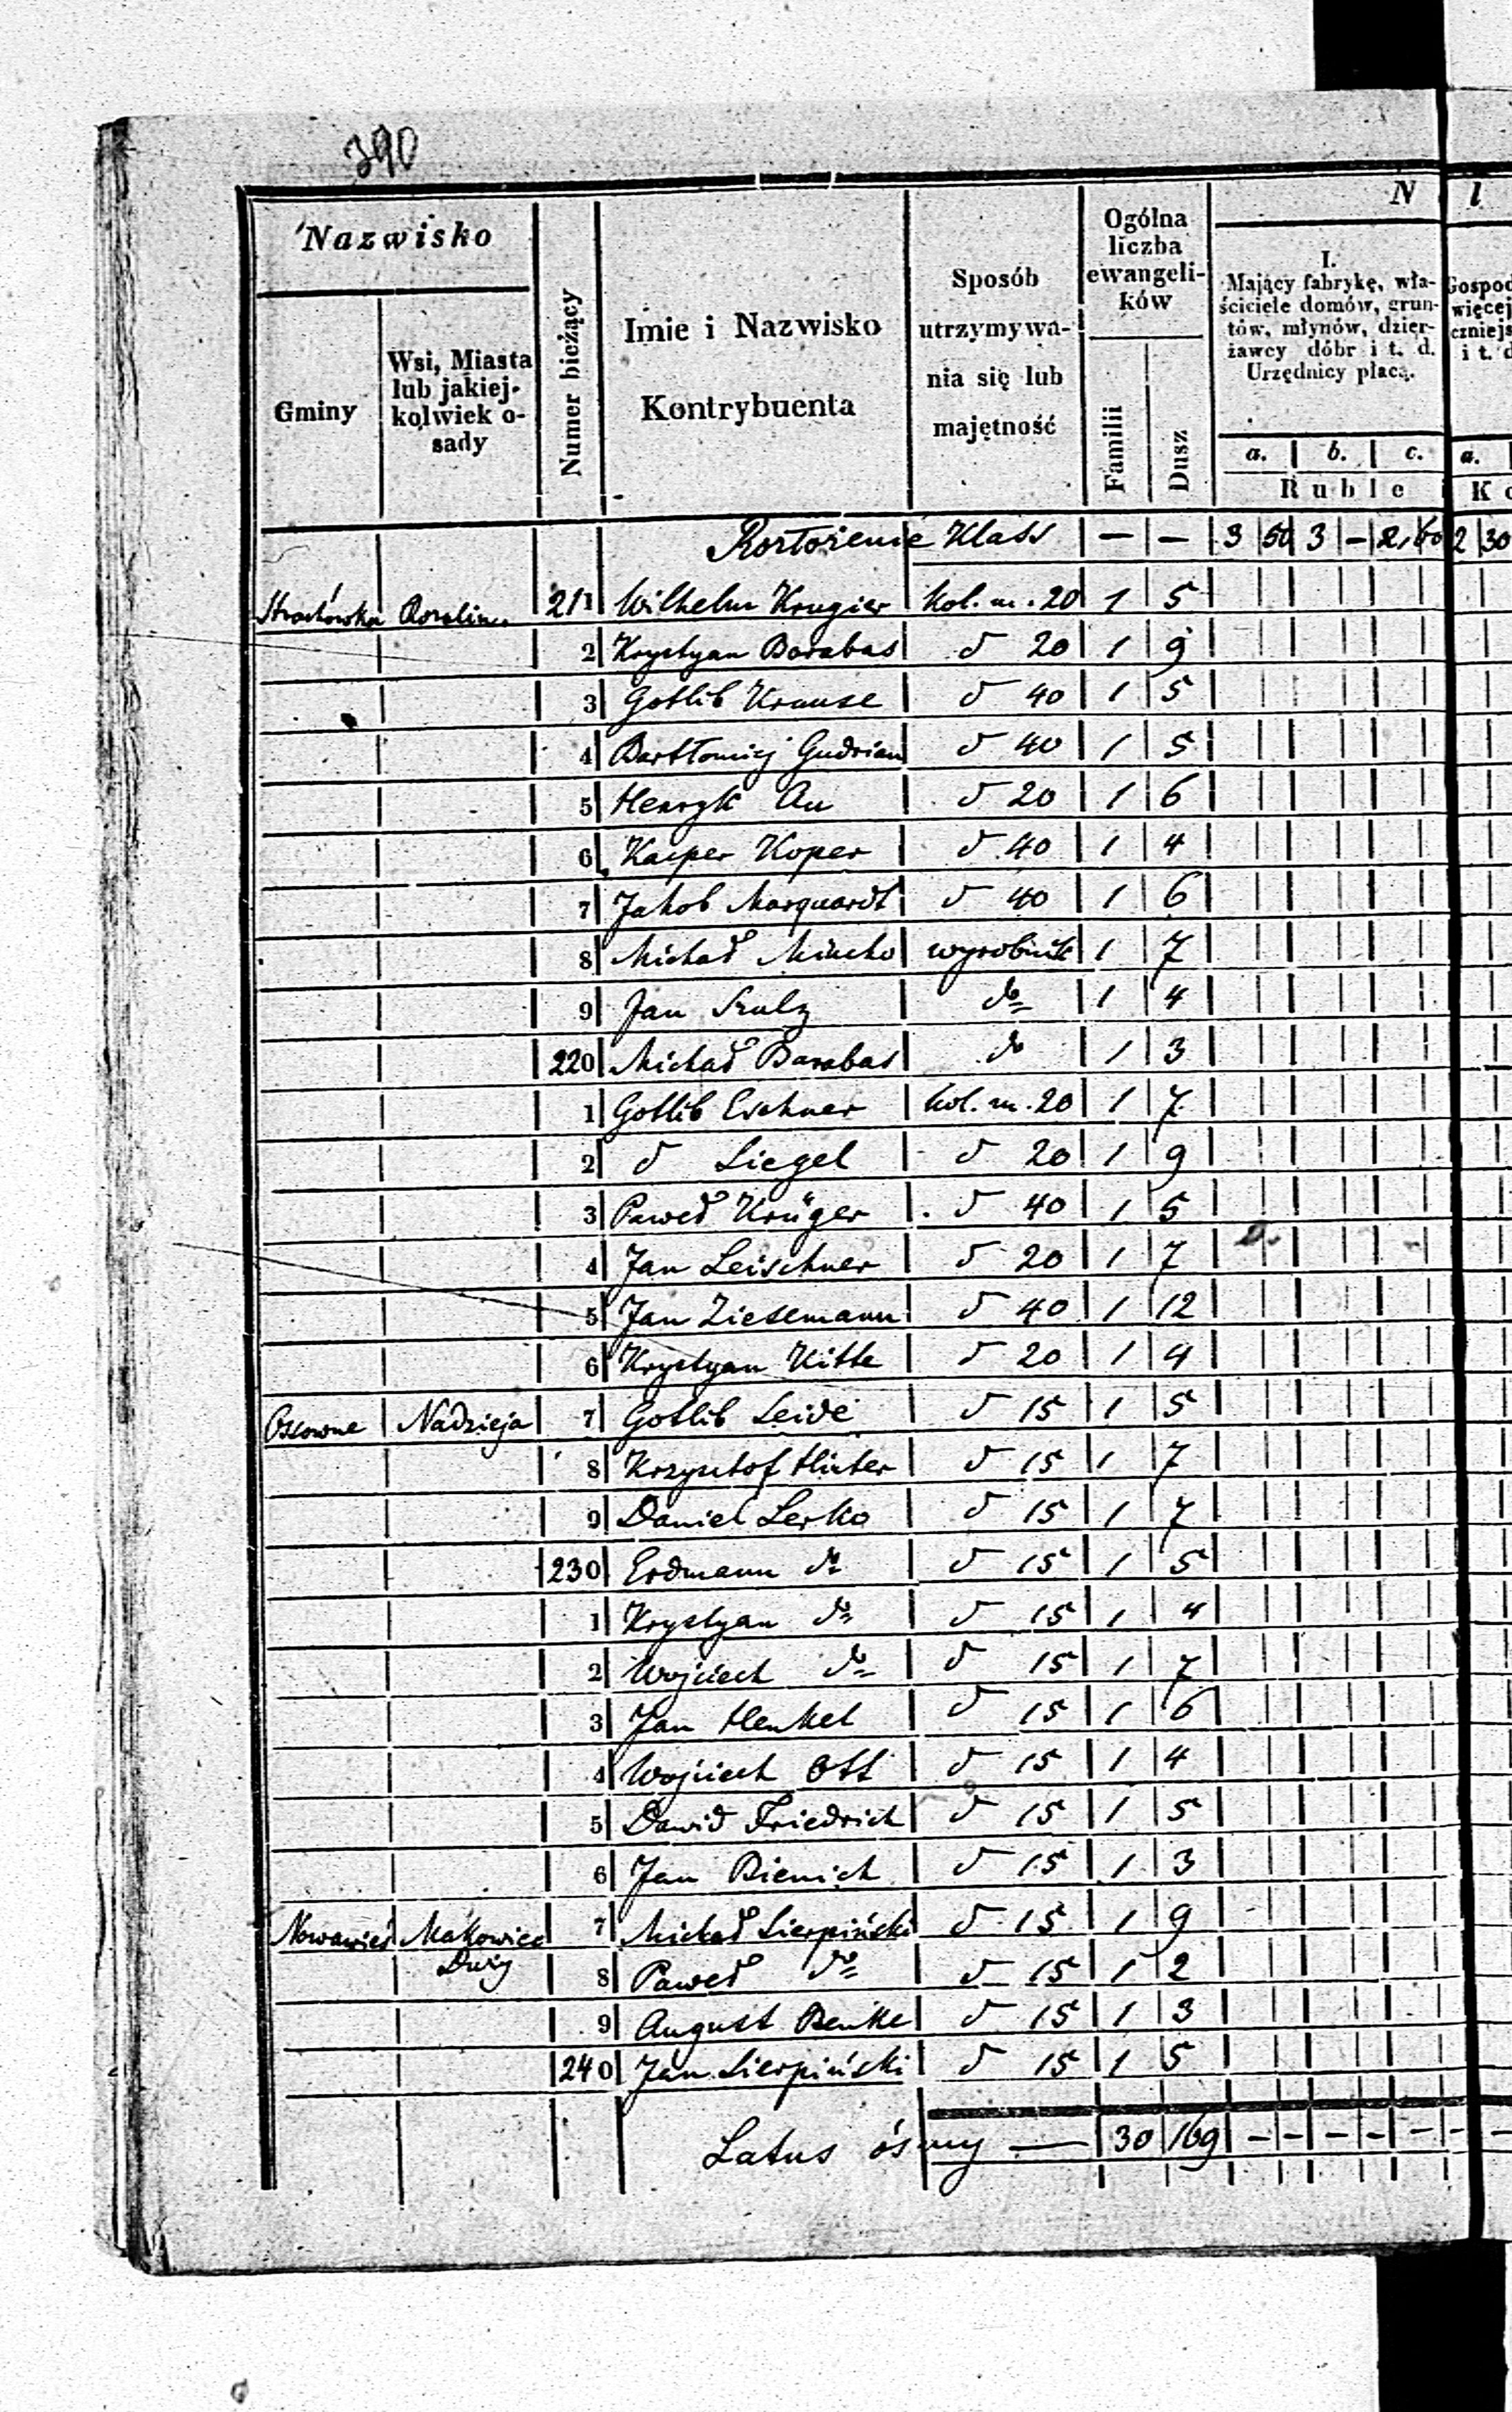 390
Nazwisko
Gminy
Wsi, Miasta
lub jakiej-
kolwiek o-
sady
Numer bieżący
Imie i Nazwisko
Kontrybuenta
Sposób
utrzymywa-
nia się lub
majętność
Ogólna
liczba
ewangeli-
ków
Familii
Dusz
N
I.
Mający fabrykę, wła-
ściciele domów, grun-
tów, młynów, dzier-
żawcy dóbr i t. d.
Urzędnicy płacą.
a. b. c.
Ruble
Gospod
więcej
czniejs
i t. d
a.
K
Rozłożenie Klass — — 3 50 3 — 2,60 2 30
Strachówka Rozalin 211 Wilhelm Krugier kol. m. 20 1 5
2 Krystyan Barabas d 20 1 9
3 Gotlib Krause d 40 1 5
4 Bartłomiej Gudrian d 40 1 5
5 Henryk Au d 20 1 6
6 Kacper Koper d 40 1 4
7 Jakob Marquardt d 40 1 6
8 Michał wyrobnik 1 7
9 Jan Szulz do 1 4
220 Michał Barabas do 1 3
1 Gotlib Eschner kol. m. 20 1 7
2 d Liegel d 20 1 9
3 Paweł Krüger d 40 1 5
4 Jan Leischner d 20 1 7
5 Jan Ziesemann d 40 1 12
6 Krystyan Kitte d 20 1 4
Ossowne Nadzieja 7 Gotlib Leide d 15 1 5
8 Krzysztof Hinter d 15 1 7
9 Daniel Lerko d 15 1 7
230 Erdmann do d 15 1 5
1 Krystyan do d 15 1 4
2 Wojciech do d 15 1 7
3 Jan Henkel d 15 1 6
4 Wojciech Ott d 15 1 4
5 Dawid Friedrich d 15 1 5
6 Jan Bienich d 15 1 3
Nowawieś Makowiec 7 Michał Sierpiński d 15 1 9
Duży 8 Paweł do d 15 1 2
9 August Benke d 15 1 3
240 Jan Sierpiński d 15 1 5
Latus ósmy — 30 169 — — — — — —